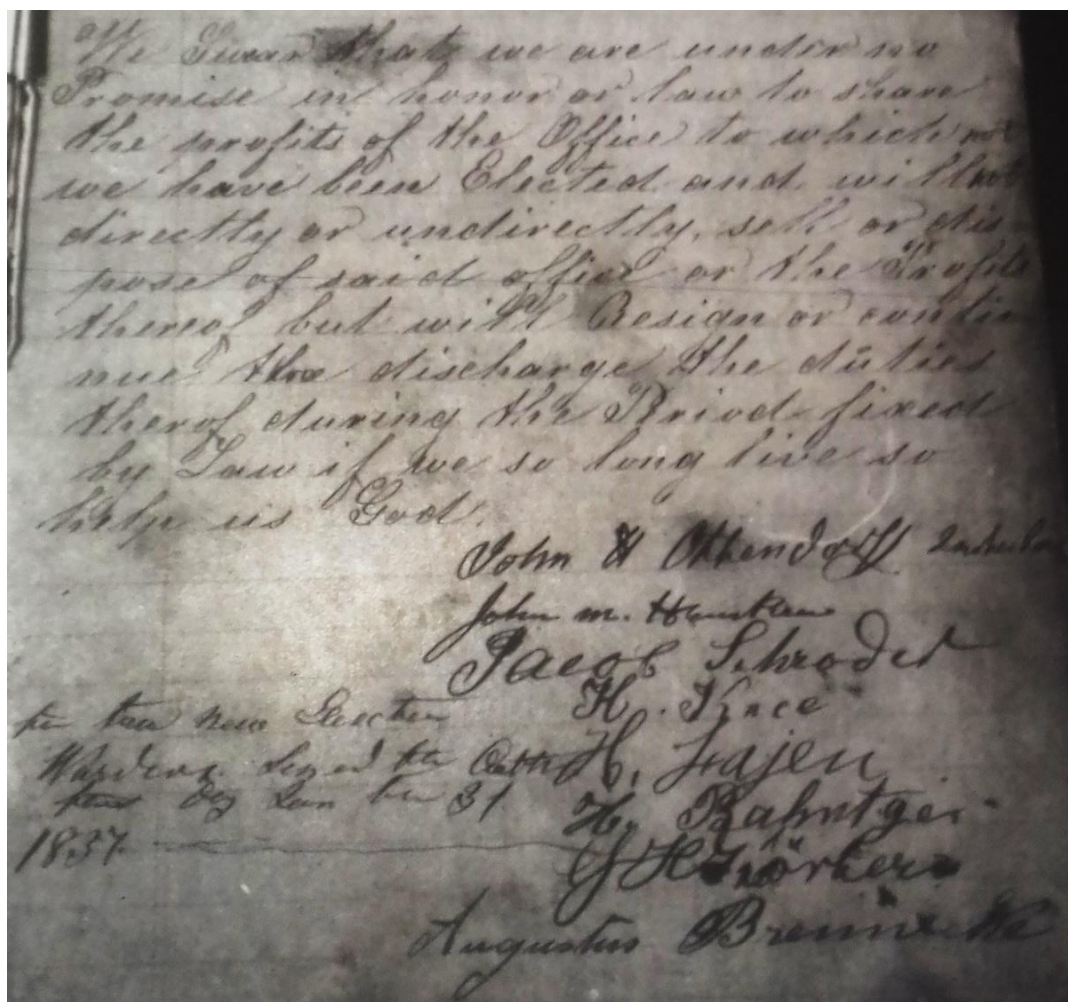 We Swear that we are under no
Promise in honor or law to share
the profits of the Office to which
we have been Elected and will not
directly or undirectly, sell or dis
pose of said office or the Profits
thereof but will Resign or contin
nue the discharge the duties
therof during the Priod fixed
by Law if we so long live so
help us God.
John H Ottendorff
John m.
Jacob Schroder
H.
new
H. Fajen
Wardens the Oath
31
H.
1837
G H
Augustus Brennecke